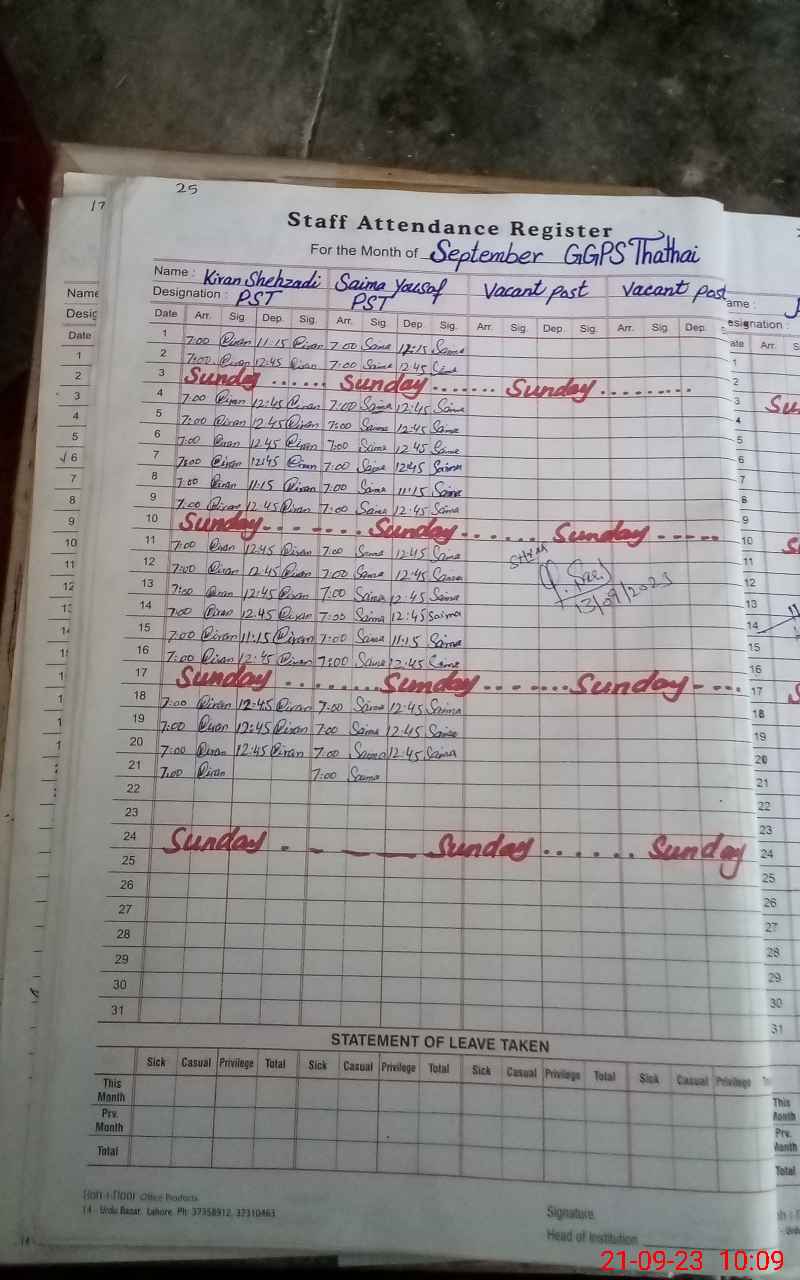 25
17
Staff Attendance Register
For the Month of September GGPS Thathai
Name : Kiran Shehzadi Saima Yousaf Vacant Post Vacant Post
Designation : PST PST
Date Arr. Sig. Dep. Sig. Arr. Sig. Dep. Sig. Arr. Sig. Dep. Sig. Arr. Sig. Dep.
1 7:00 Kiran 11:15 Kiran 7:00 Saima Saima
2 7:00 Kiran 12:45 Kiran 7:00 Saima 12:45 Saima
3 Sunday ...... Sunday ....... Sunday .........
4 7:00 Kiran 12:45 Kiran 7:00 Saima 12:45 Saima
5 7:00 Kiran 12:45 Kiran 7:00 Saima 12:45 Saima
6 7:00 Kiran 12:45 Kiran 7:00 Saima 12:45 Saima
7 7:00 Kiran 12:45 Kiran 7:00 Saima 12:45 Saima
8 7:00 Kiran 11:15 Kiran 7:00 Saima 11:15 Saima
9 7:00 Kiran 12:45 Kiran 7:00 Saima 12:45 Saima
10 Sunday - - - - - - - Sunday - - - - - - Sunday - - - - -
11 7:00 Kiran 12:45 Kiran 7:00 Saima 12:45 Saima
12 7:00 Kiran 12:45 Kiran 7:00 Saima 12:45 Saima
13 7:00 Kiran 12:45 Kiran 7:00 Saima 12:45 Saima 13/09/2023
14 7:00 Kiran 12:45 Kiran 7:00 Saima 12:45 Saima
15 7:00 Kiran 11:15 Kiran 7:00 Saima 11:15 Saima
16 7:00 Kiran 12:45 Kiran 7:00 Saima 12:45 Saima
17 Sunday ........ Sunday ........ Sunday - - - -
18 7:00 Kiran 12:45 Kiran 7:00 Saima 12:45 Saima
19 7:00 Kiran 12:45 Kiran 7:00 Saima 12:45 Saima
20 7:00 Kiran 12:45 Kiran 7:00 Saima 12:45 Saima
21 7:00 Kiran 7:00 Saima
22
23
24 Sunday . - - — Sunday ...... Sunday
25
26
27
28
29
30
31
STATEMENT OF LEAVE TAKEN
Sick Casual Privilege Total Sick Casual Privilege Total Sick Casual Privilege Total Sick Casual Privilege
This Month
Prv. Month
Total
Office Products
14 - Urdu Bazar, Lahore. Ph: 37358912, 37310463
Signature
Head of Institution
21-09-23 10:09